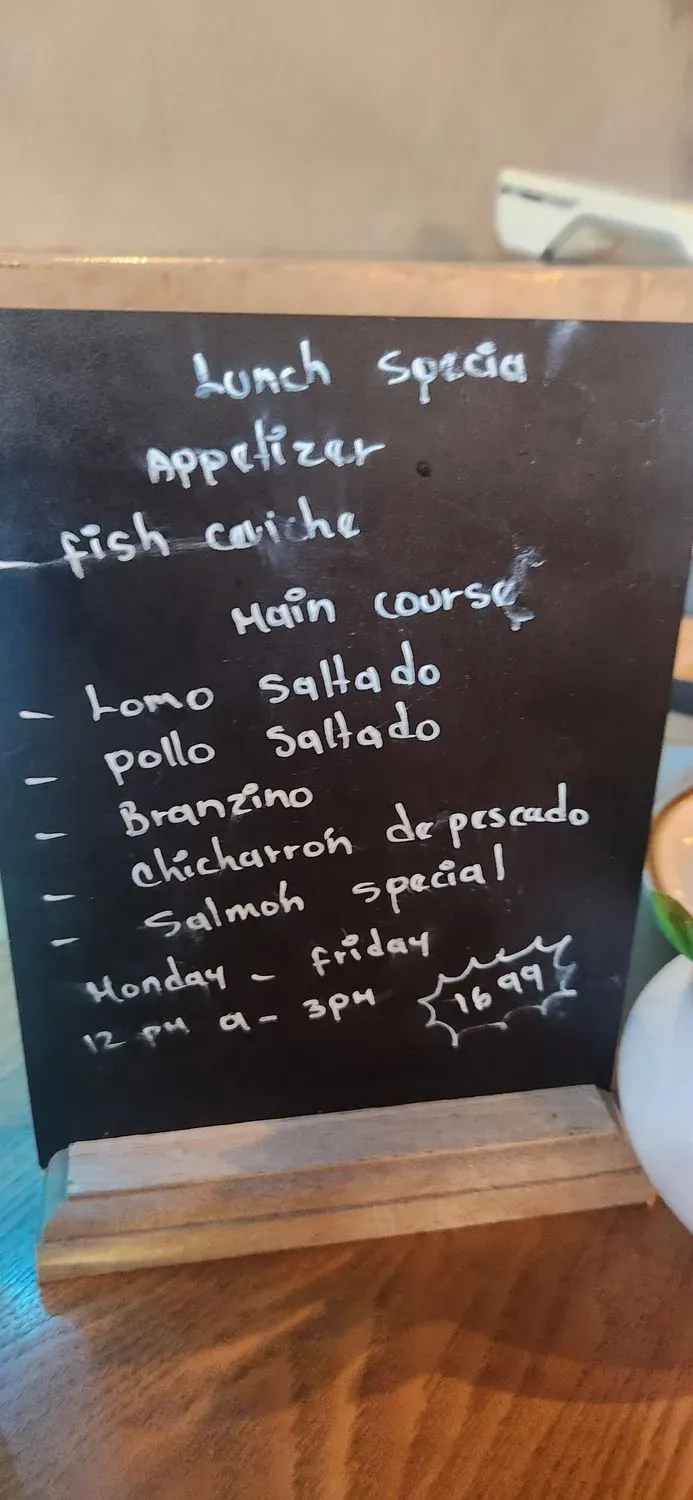 Lunch Specia
Appetizer
- fish ceviche
Main course
- Lomo Saltado
- pollo Saltado
- Branzino
- chicharron de pescado
- Salmon special
Monday - friday
12 PM a - 3PM 16 99